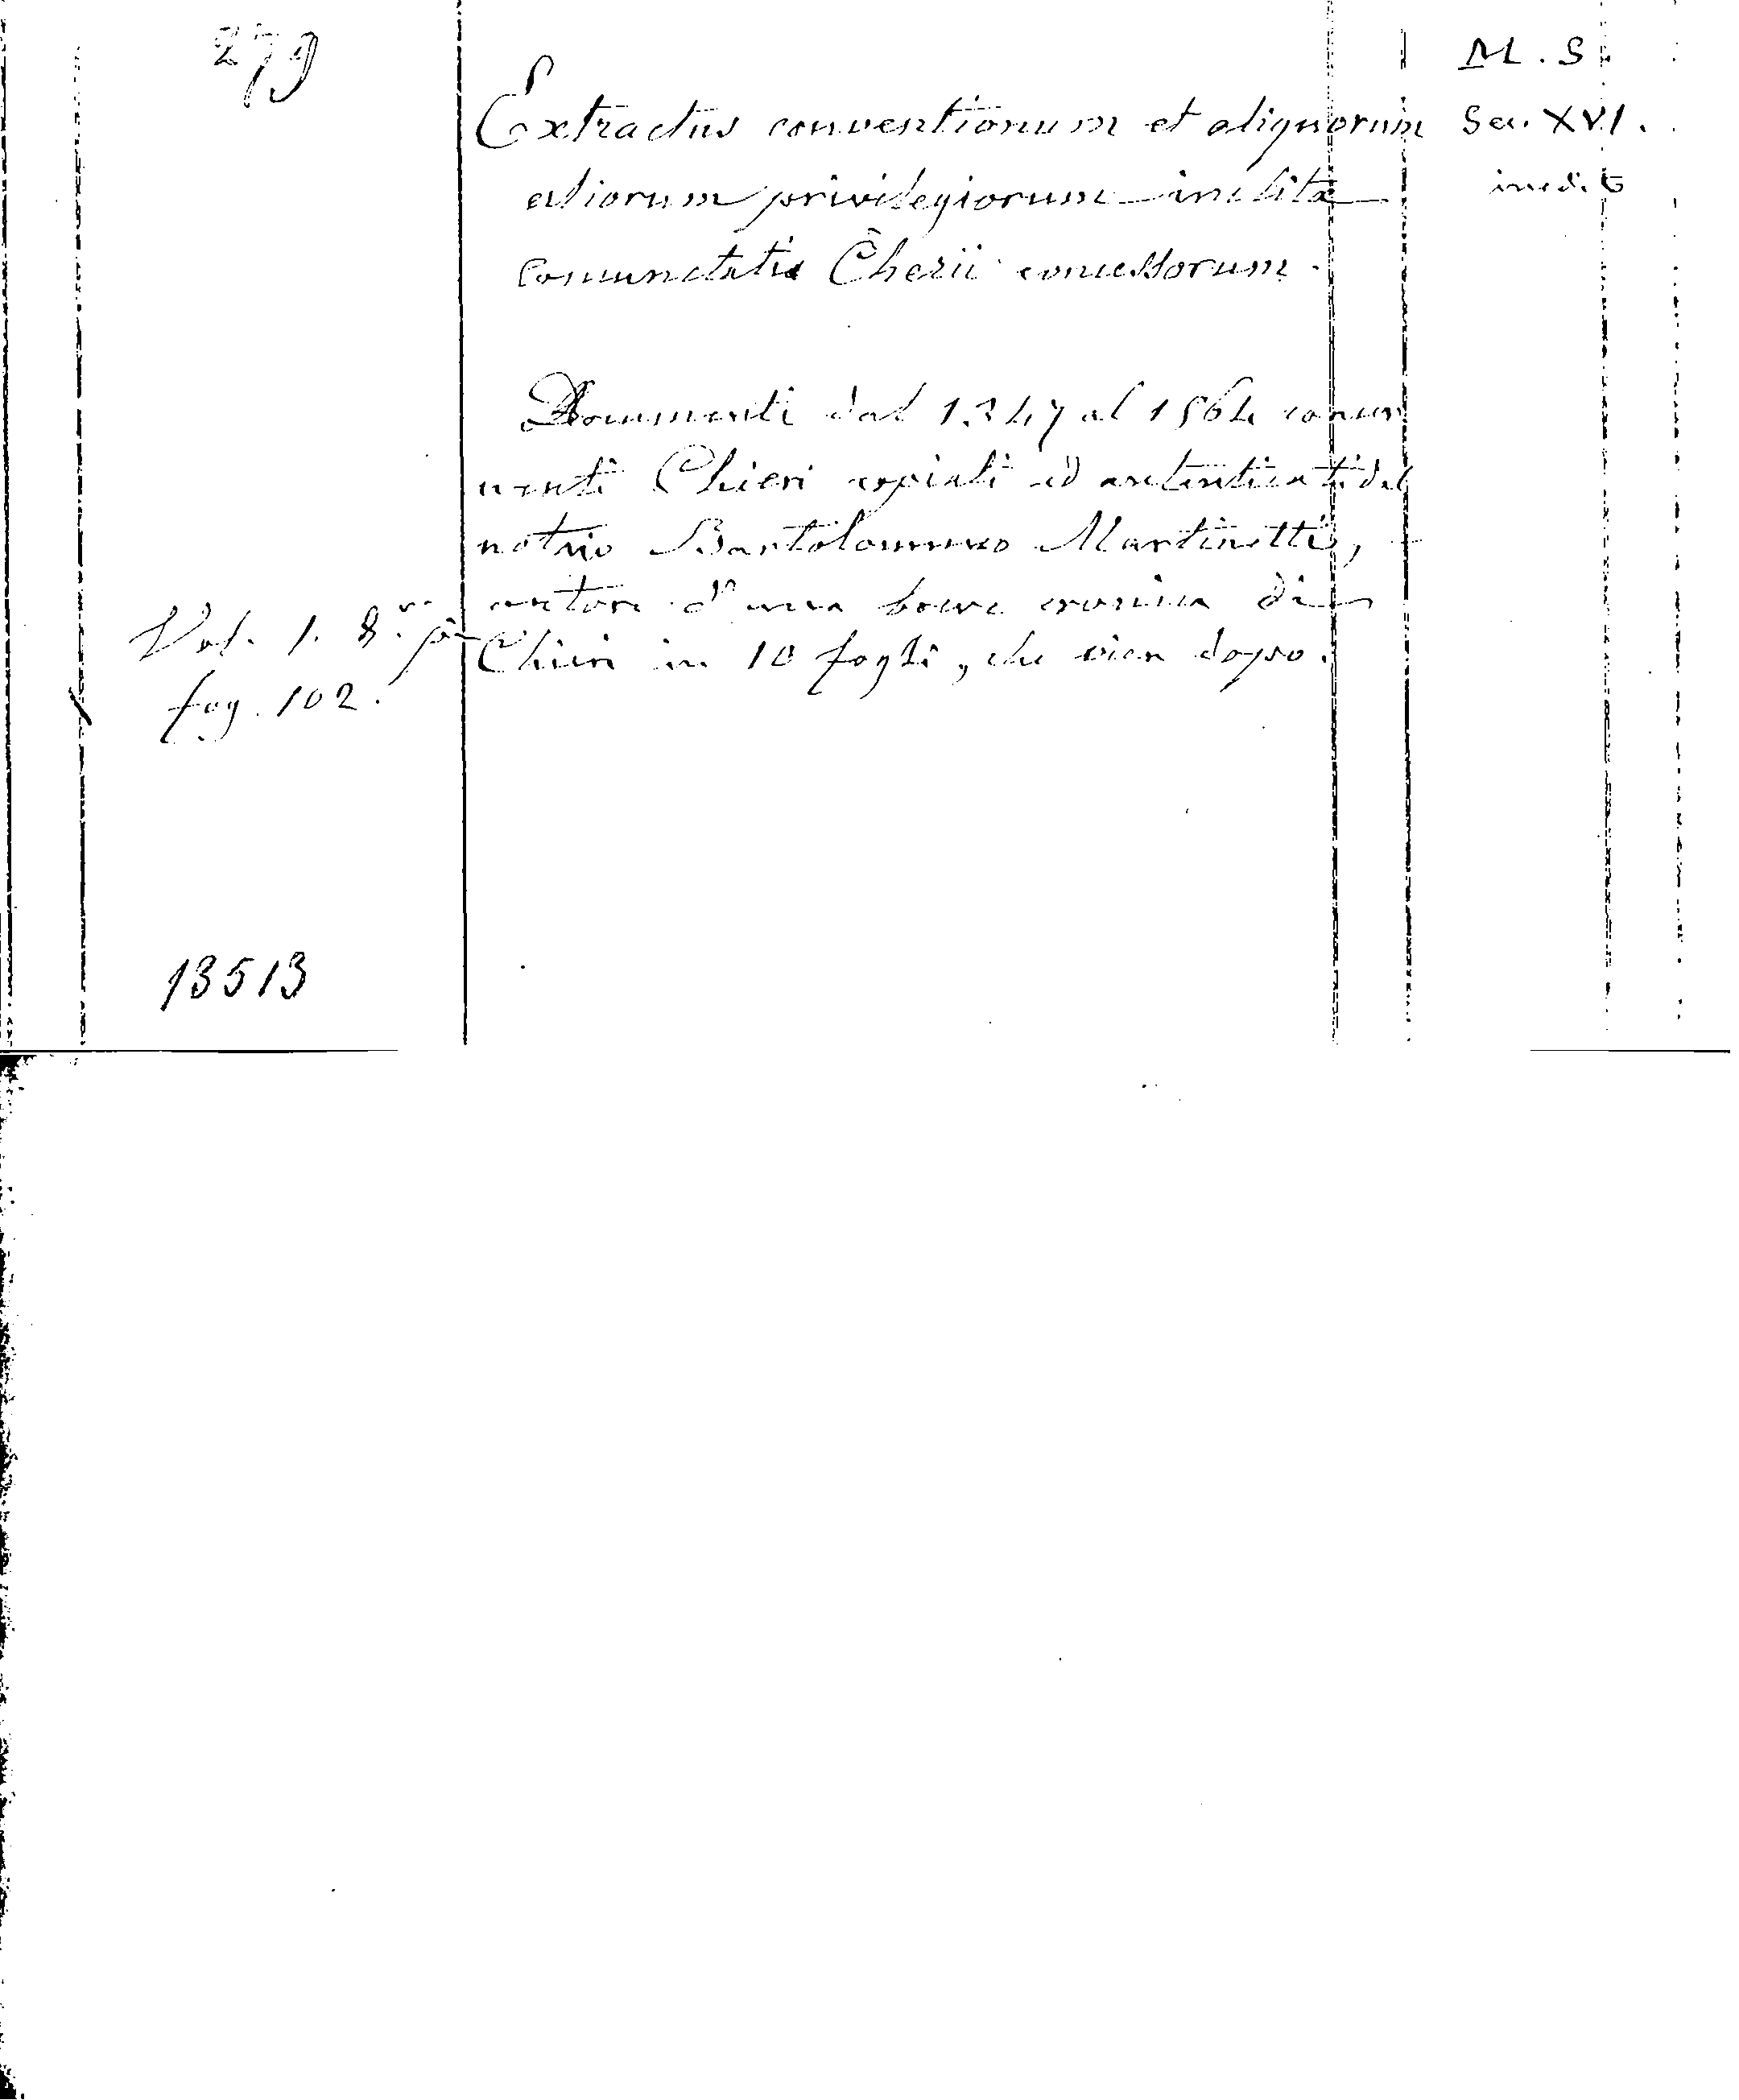 279
Extractus conventionum et aliquorum
aliorum privilegiorum inclitæ
Comunitatis Cherii concessorum.
M. S.
Sec. XVI.
inedito
Documenti dal 1347 al 1564 concer
nenti Chieri copiati ed autenticati dal
notaio Bartolommeo Martinetti,
autore d'una breve cronica di
Chieri in 10 fogli, che vien dopo.
Vol. 1. 8.º
fog. 102.
13513